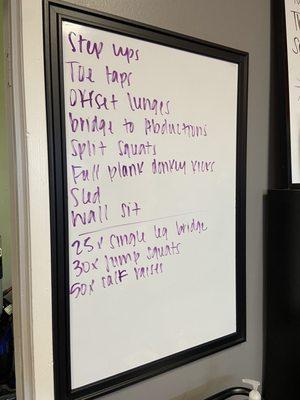 Step ups
Toe taps
Offset lunges
bridge to Abductions
Split squats
Full plank donkey kicks
Sled
Wall sit
25x single leg bridge
30x jump squats
50x calf raises